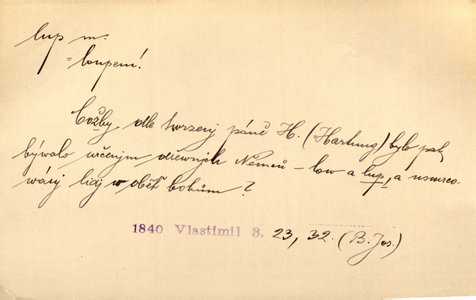 lup m.
= loupení!
Cožby, dle twrzený páně H. (Hartung) bylo pak
býwalo určeným dřewných Němců – low a lup, a usmrco-
wáný lidj w oběť bohům?
1840 Vlastimil 3. 23, 32. (B. Jos.)